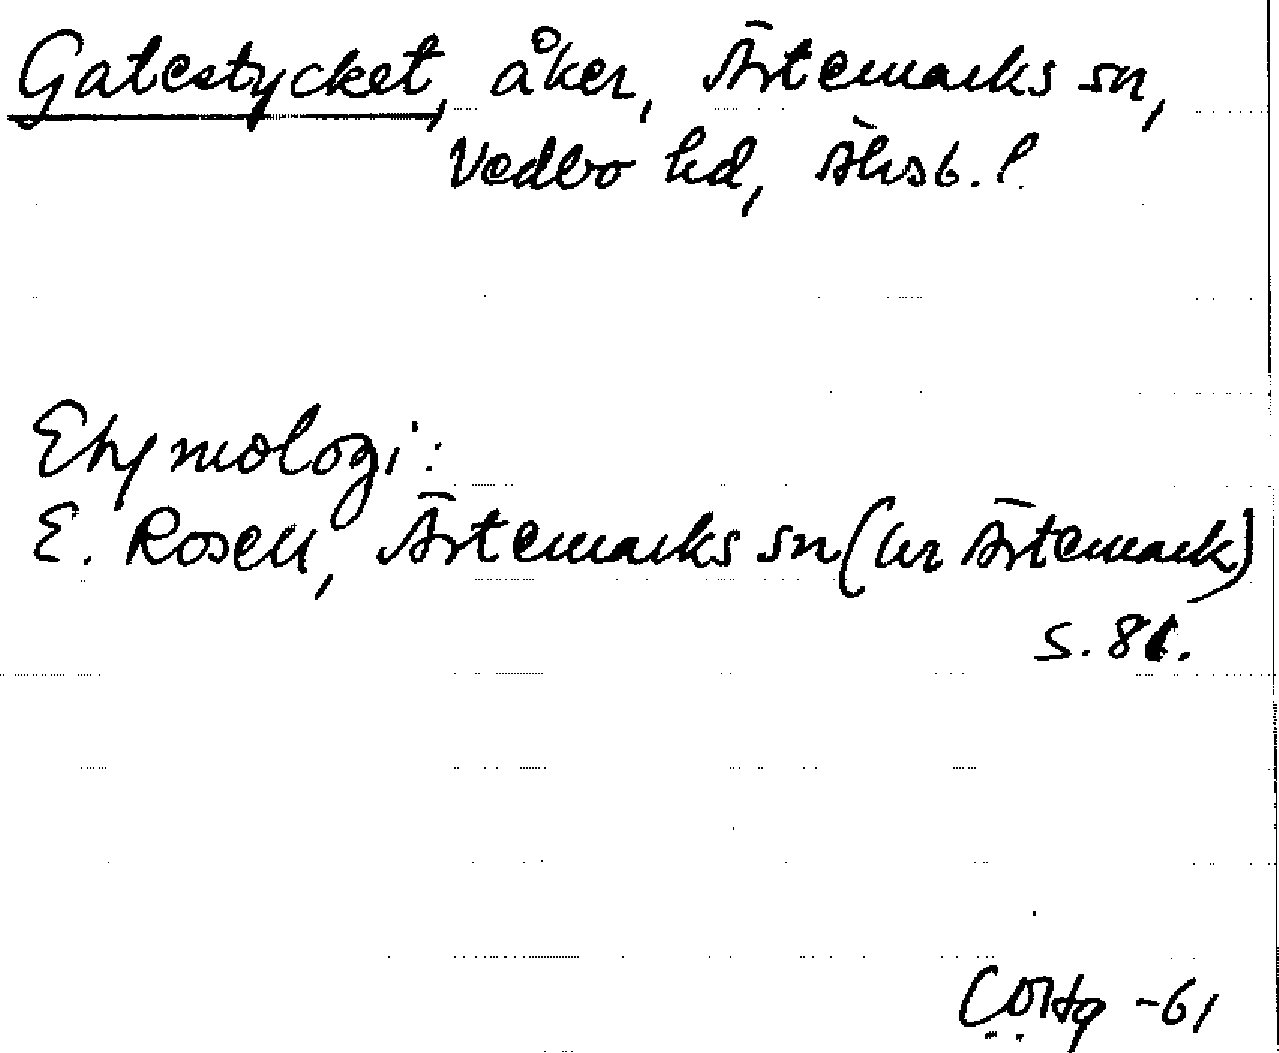 Gatestycket, åker, Ärtemarks sn,
Vedbo hd, Älvsb. l.
Etymologi:
E. Rosell, Ärtemarks sn (ur Ärtemark)
s. 81.
-61